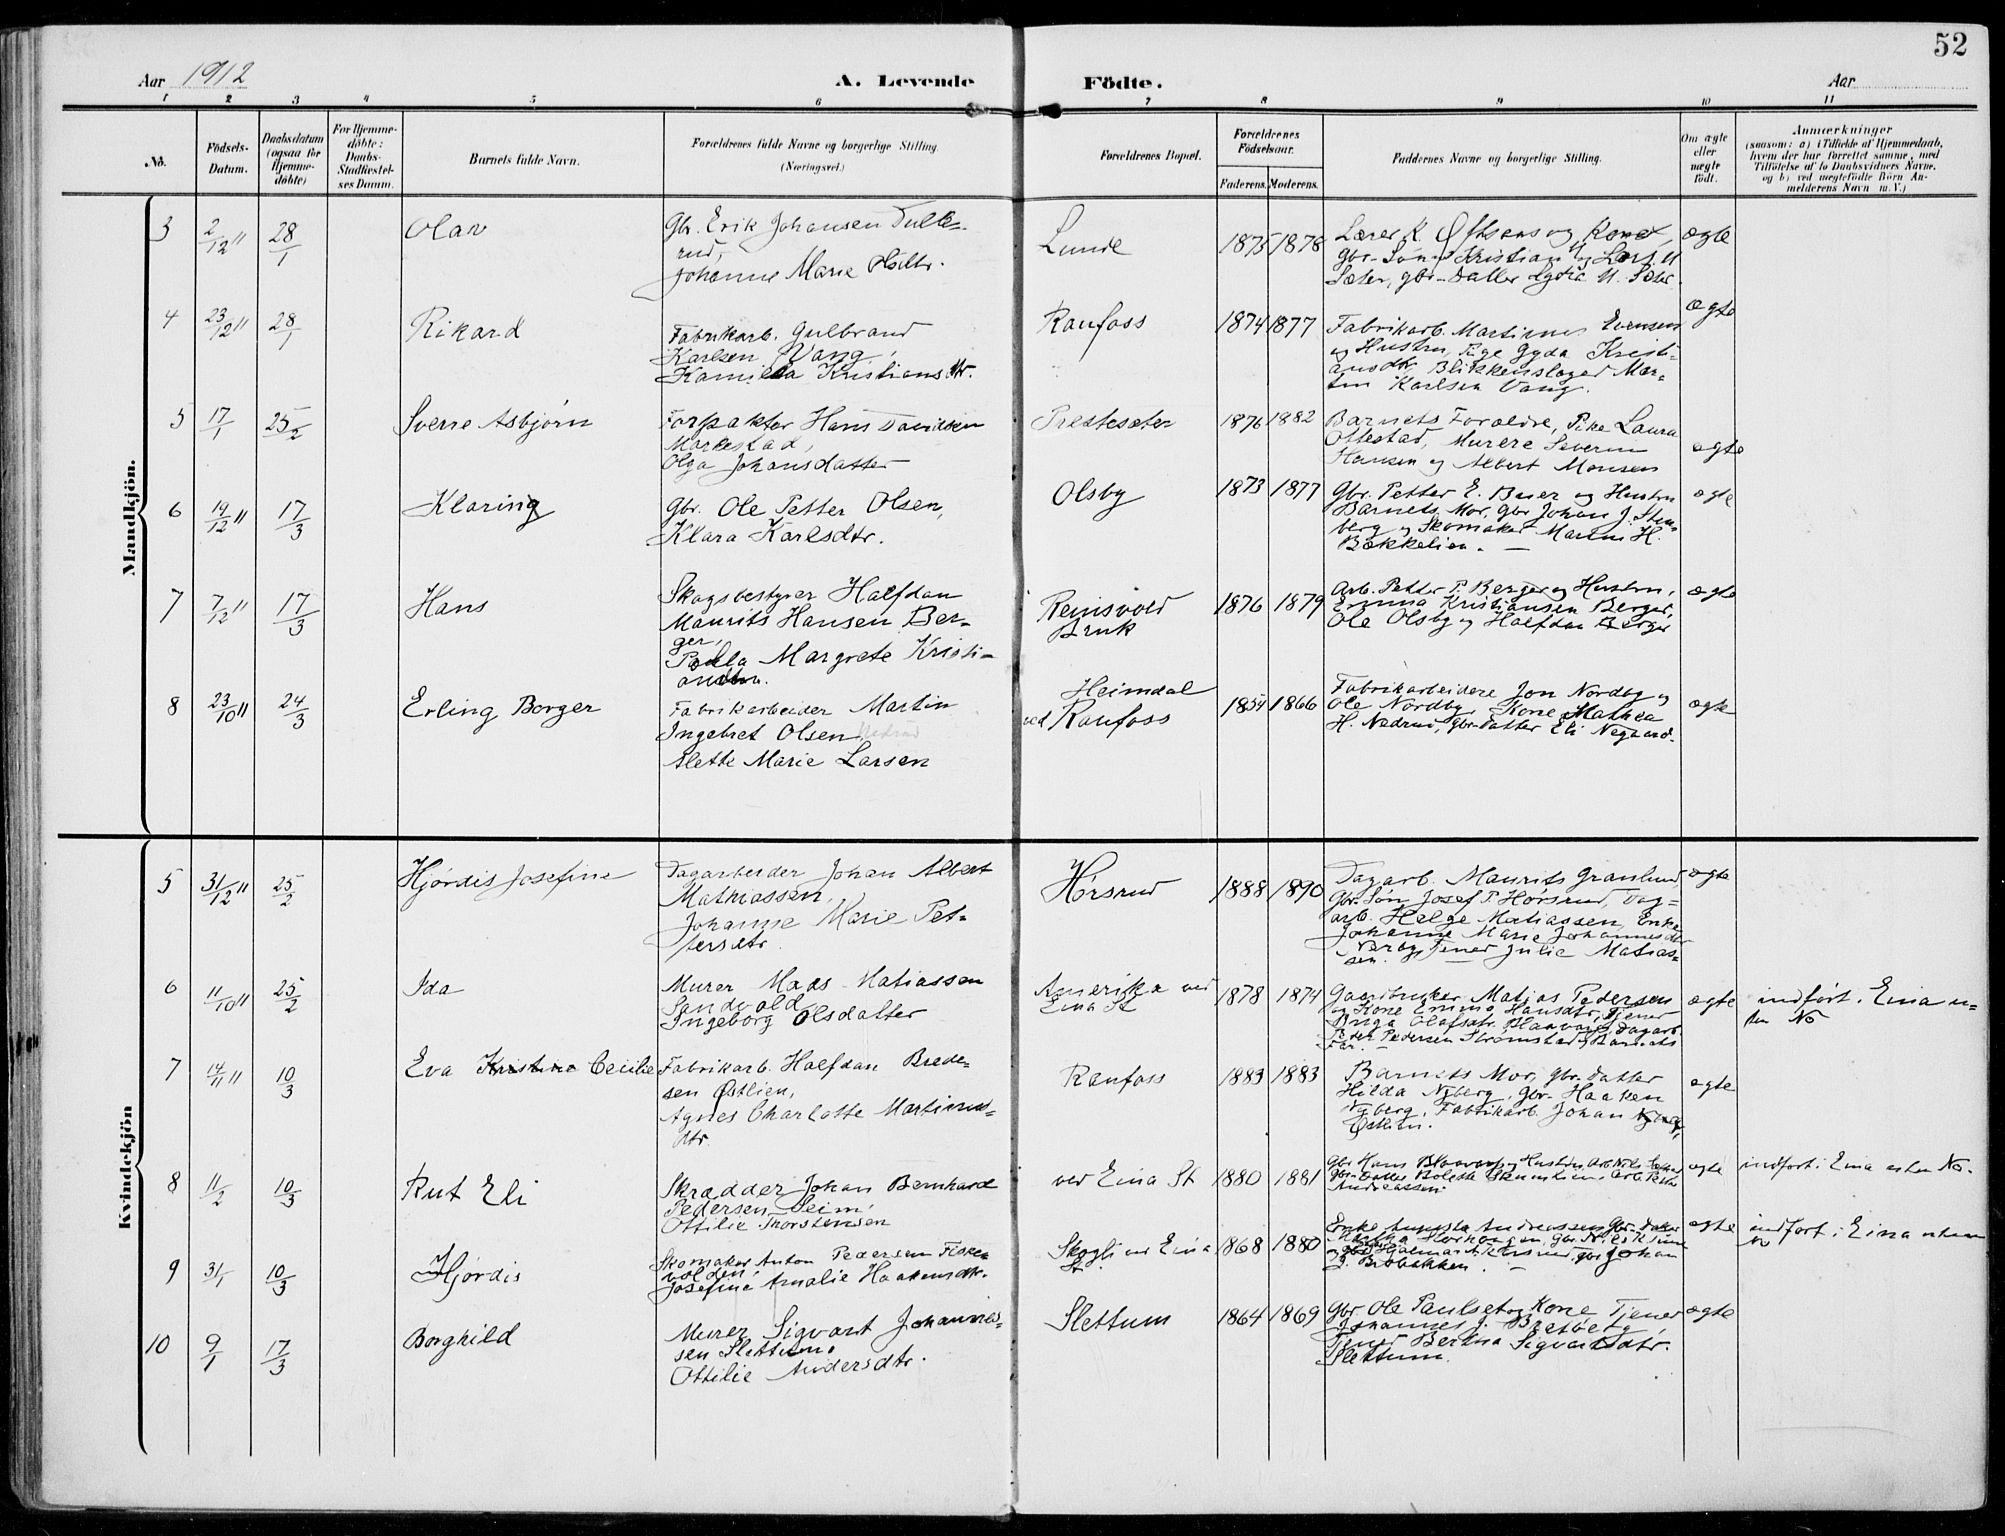 52
Aar 1912
A. Levende Födte.
Aar
1 2 3 4 5 6 7 8 9 10 11
No.
Födsels-
Datum.
Daabsdatum
(ogsaa for
Hjemme-
döbte)
For Hjemme-
döbte:
Daabs-
Stadfæstel-
ses Datum.
Barnets fulde Navn.
Forældrenes fulde Navne og borgerlige Stilling
(Næringsvei.)
Forældrenes Bopæl.
Forældrenes
Födselsaar.
Faderens. Moderens.
Faddernes Navne og borgerlige Stilling.
Om ægte
eller
uægte
födt.
Anmærkninger
(saasom: a) i Tilfælde af Hjemmedaab,
hvem der har forrettet samme, med
Tilföielse af to Daabsvidners Navne,
og b) ved uægtefödte Börn An-
melderens Navn m. V.)
Mandkjön.
3 2/12 11 28/1 Olav
Gbr. Erik Johansen Tulle-
rud,
Johanne Marie
Lunde
1875 1878
Lærer K. og Kone,
gbr-Søn Kristian og Lars M
Sæter, gbr-Datter Lydia M. Sæter.
ægte
4 23/12 11 28/1 Rikard
Fabrikarb. Gulbrand
Karlsen Vang,
Kamilla Kristiansdtr.
Raufoss
1874 1877
Fabrikarb. Martinus Evensen
og Hustru, Pige Gyda Kristi-
ansdtr, Blikkenslager Mar-
tin Karlsen Vang.
ægte
5 17/1 25/2 Sverre Asbjørn
Forpakter Hans Davidsen
Markestad,
Olga Johansdatter
Prestesæter
1876 1882
Barnets Forældre, Pike Laura
Ottestad, Murere Severin
Hansen og Albert Monsen
ægte
6 19/12 11 17/3 Klaring
Gbr. Ole Petter Olsen,
Klara Karlsdtr.
Olsby
1873 1877
Gbr. Petter E. og Hustru
Barnets Mor, Gbr Johan J. Sten-
berg og Skomaker H.
Bækkelien. —
ægte
7 7/12 11 17/3 Hans
Skogsbestyrer Halfdan
Maurits Hansen Ber-
ger,
Paula Margrete Kristi-
Reinsvold
Bruk
1876 1879
Arb. Petter P. Berger og Hustru,
Emma Kristiansen Berger,
Ole Olsby og Halfdan Berger
ægte
8 23/10 11 24/3 Erling Borger
Fabrikarbeider Martin
Ingebret Olsen
Alette Marie Larsen
Heimdal
ved Raufoss
1854 1866
Fabrikarbeidere Jon Nordby og
Ole Nordby, Kone Mathea
H. Nedrud, gbr-datter Eli Negaard.
ægte
Kvindekjön
5 31/12 11 25/2 Hjørdis Josefine
Dagarbeider Johan Albert
Mathiassen,
Johanne Marie Pet-
tersdtr.
Hørsrud
1888 1890
Dagarb. Maurits Granlund,
Gbr-Søn Josef P. Hørsrud, Dag-
arb. Helge Matiassen, Enke
Johanne Marie Johannesdtr
Nerby, Tjener Julie Matias-
sen.
ægte
6 11/10 11 25/2 Ida
Murer Mads Matiassen
Sandvold
Ingeborg Olsdatter
Amerika ved
Eina St
1878 1874
Gaardbruker Matias Pedersen
og Kone Emma Hansdtr, Tjener
Olafsdtr. Blaavarp, Dagarb.
Peder Pedersen Strømstad og Barnets
Far. —
ægte
indført i Eina u-
ten No
7 14/11 11 10/3 Eva Kristine Cecilie
Fabrikarb. Halfdan Brede-
sen Østlien,
Agnes Charlotte Martinus-
dtr.
Raufoss
1883 1883
Barnets Mor, gbr-datter
Hilda Nyberg, Gbr. Haaken
Nyberg, Fabrikarb. Johan Nyberg,
Østlien.
ægte
8 11/2 10/3 Rut Eli
Skrædder Johan Bernhard
Pedersen Seim,
Ottilie Thorstensen
ved Eina St
1880 1881
Gbr Hans Blaavarp og Hustru, Arb. Nils
Gbr-datter Bolette Skumlien, Arb.
Andreassen.
ægte
indført i Eina uten No.
9 31/1 10/3 Hjørdis
Skomaker Anton Pedersen Fiske-
volden,
Josefine Amalie Haakensdtr.
Skogli ved Eina
St.
1868 1880
Enke Augusta Andreassen, Gbr-datter
Johan
ægte
indført i Eina uten
No
10 9/1 17/3 Borghild
Murer Sigvart Johannes-
sen Slettum,
Ottilie Andersdtr.
Slettum
1864 1869
Gbr Ole Paulset og Kone, Tjener
Johannes J. og
Tjener Bertha Sigvartsdtr.
Slettum.
ægte